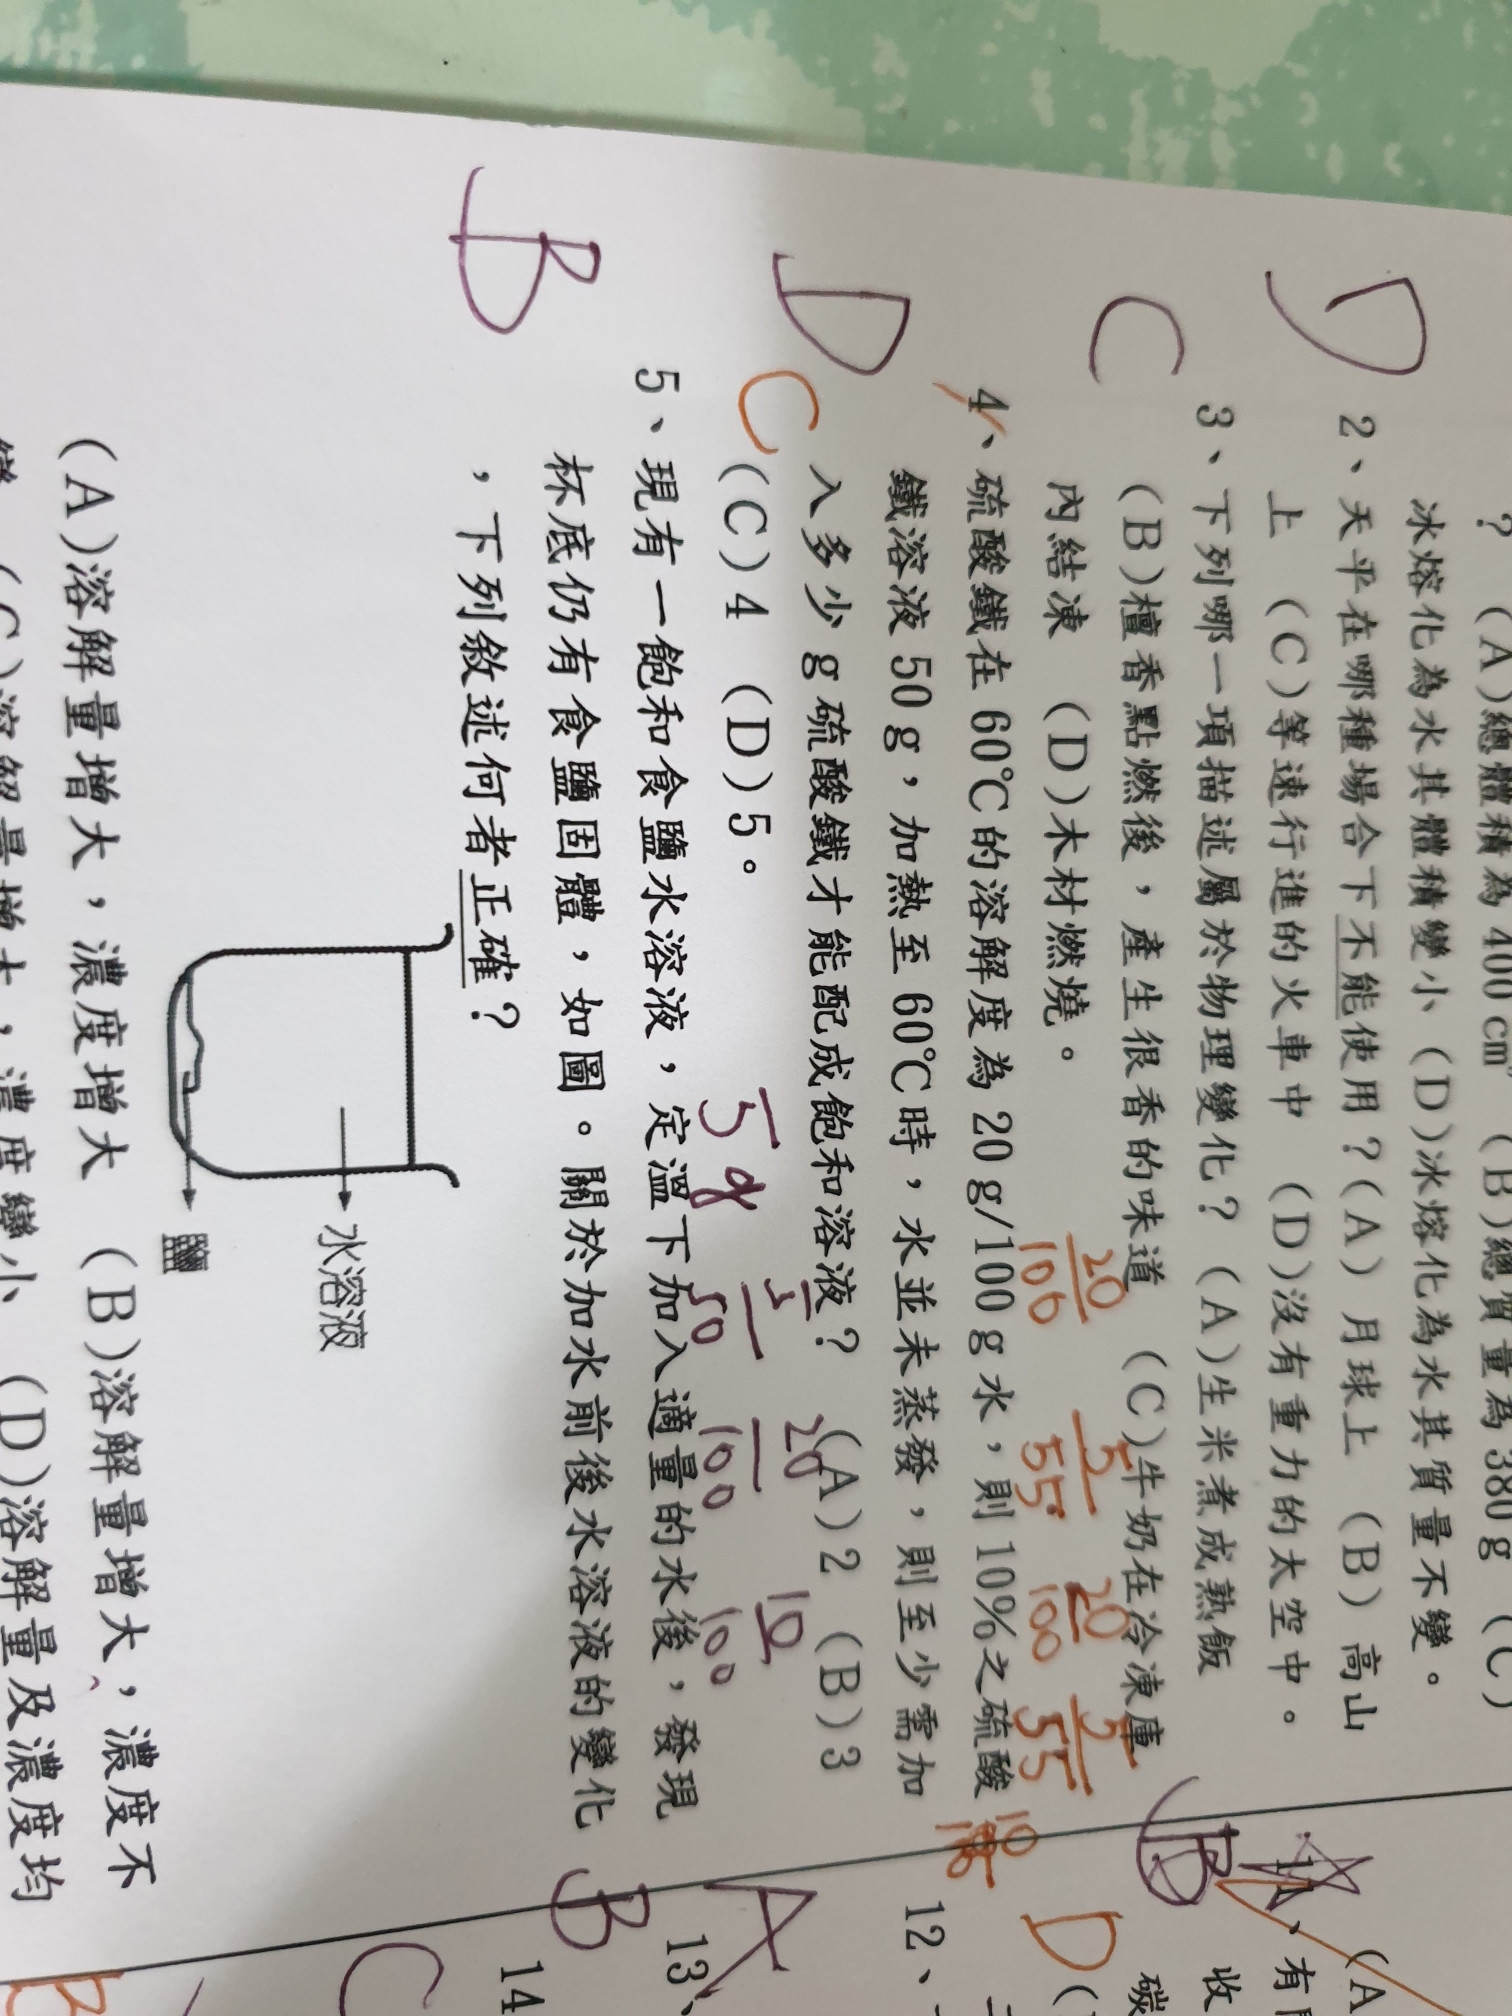 ? (A)總體積為400cm³ (B)總質量為380g (C)
冰熔化為水其體積變小 (D)冰熔化為水其質量不變。
D
2、天平在哪種場合下不能使用?(A) 月球上 (B) 高山
上 (C)等速行進的火車中 (D)沒有重力的太空中。
C
3、下列哪一項描述屬於物理變化? (A)生米煮成熟飯
(B)檀香點燃後,產生很香的味道 (C)牛奶在冷凍庫
內結凍 (D)木材燃燒。
20
100
5
55
20
100
5
55
10
D
C
4、硫酸鐵在60℃的溶解度為20g/100g水,則10%之硫酸
鐵溶液50g,加熱至60℃時,水並未蒸發,則至少需加
入多少g硫酸鐵才能配成飽和溶液? (A)2 (B)3
(C)4 (D)5。
5g
5
50
20
100
10
100
B
5、現有一飽和食鹽水溶液,定溫下加入適量的水後,發現
杯底仍有食鹽固體,如圖。關於加水前後水溶液的變化
,下列敘述何者正確?
水溶液
鹽
(A)溶解量增大,濃度增大 (B)溶解量增大,濃度不
變 (C)溶解量增大,濃度變小 (D)溶解量及濃度均
(A
B
11、有
收
D
碳
12、
A
13、
B
14
C
B